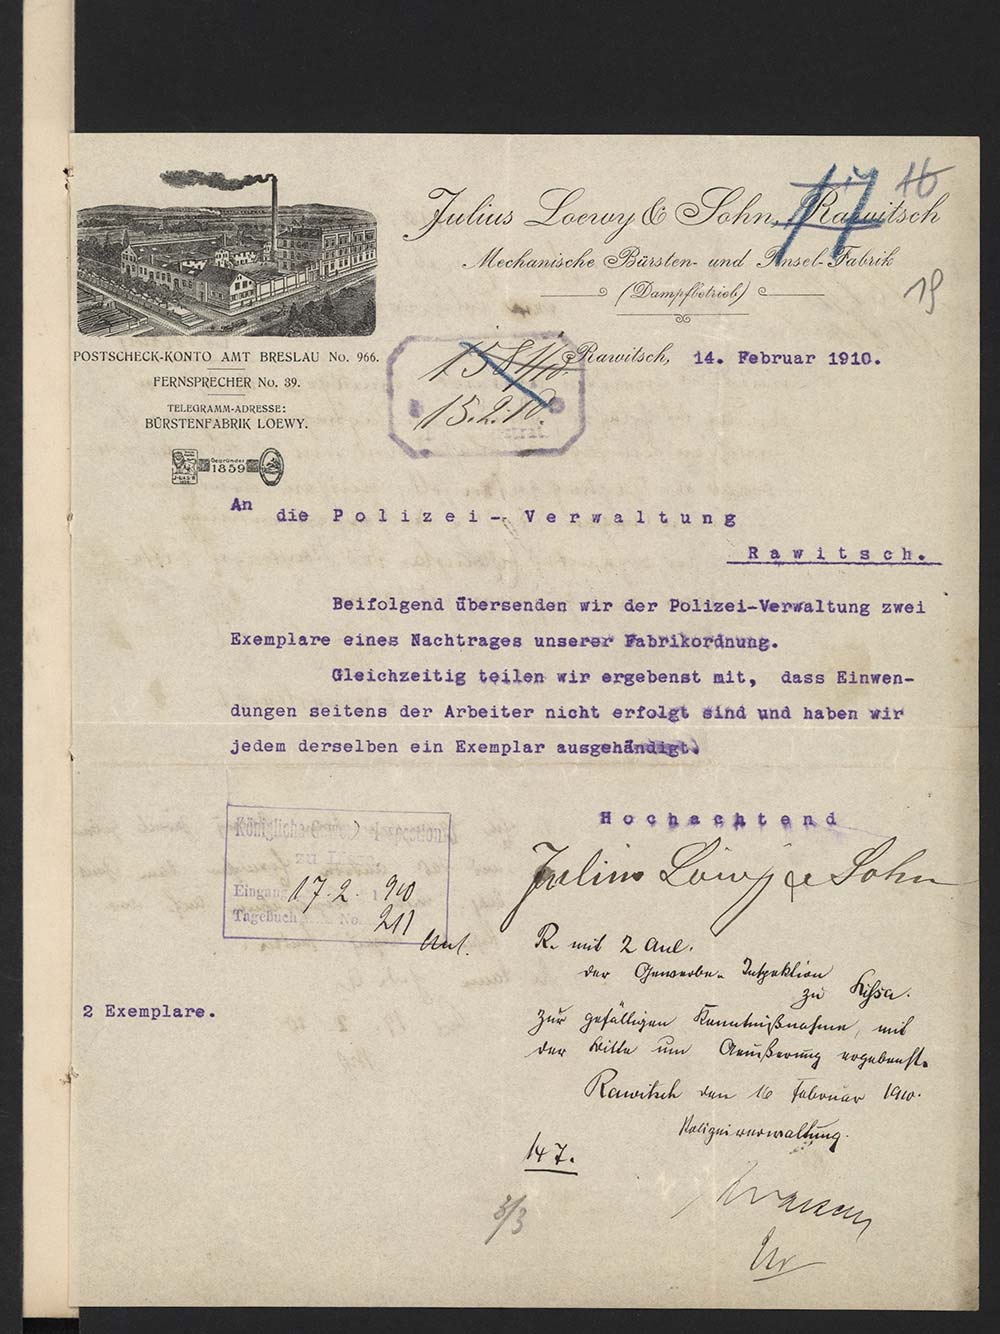 17 16
Julius Loewy & Sohn, Rawitsch
Mechanische Bürsten- und Pinsel-Fabrik
(Dampfbetrieb)
19
POSTSCHECK-KONTO AMT BRESLAU No. 966.
FERNSPRECHER No. 39.
TELEGRAMM-ADRESSE:
BÜRSTENFABRIK LOEWY.
Gegründet
1859
Rawitsch, 14. Februar 1910.
15.2.10.
An
die Polizei-Verwaltung
Rawitsch.
Beifolgend übersenden wir der Polizei-Verwaltung zwei
Exemplare eines Nachtrages unserer Fabrikordnung.
Gleichzeitig teilen wir ergebenst mit, dass Einwen-
dungen seitens der Arbeiter nicht erfolgt sind und haben wir
jedem derselben ein Exemplar ausgehändigt.
Hochachtend
Julius Löwy & Sohn
Königliche Inspection
zu
Eingang 17.2. 1910
Tagebuch No. 211
Anl.
2 Exemplare.
R. mit 2 Anl.
der Gewerbe-Inspektion
zu Lissa.
zur gefälligen Kenntnißnahme, mit
der Bitte um Aeußerung ergebenst.
Rawitsch den 16 Februar 1910.
Polizeiverwaltung.
147.
3/3